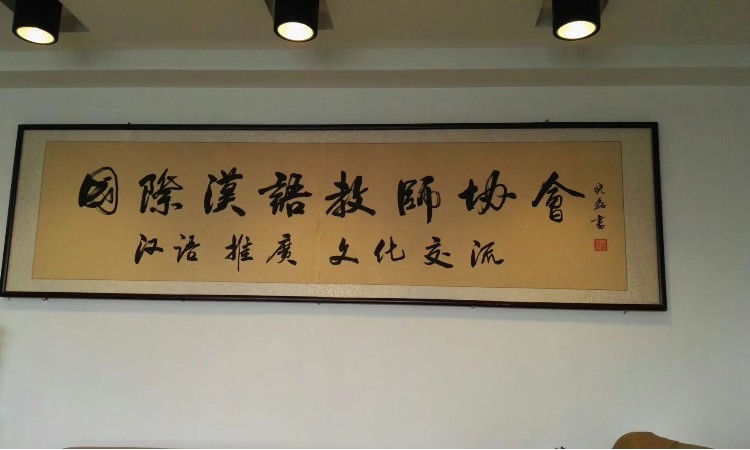 國際漢語教師协會
汉语推廣文化交流